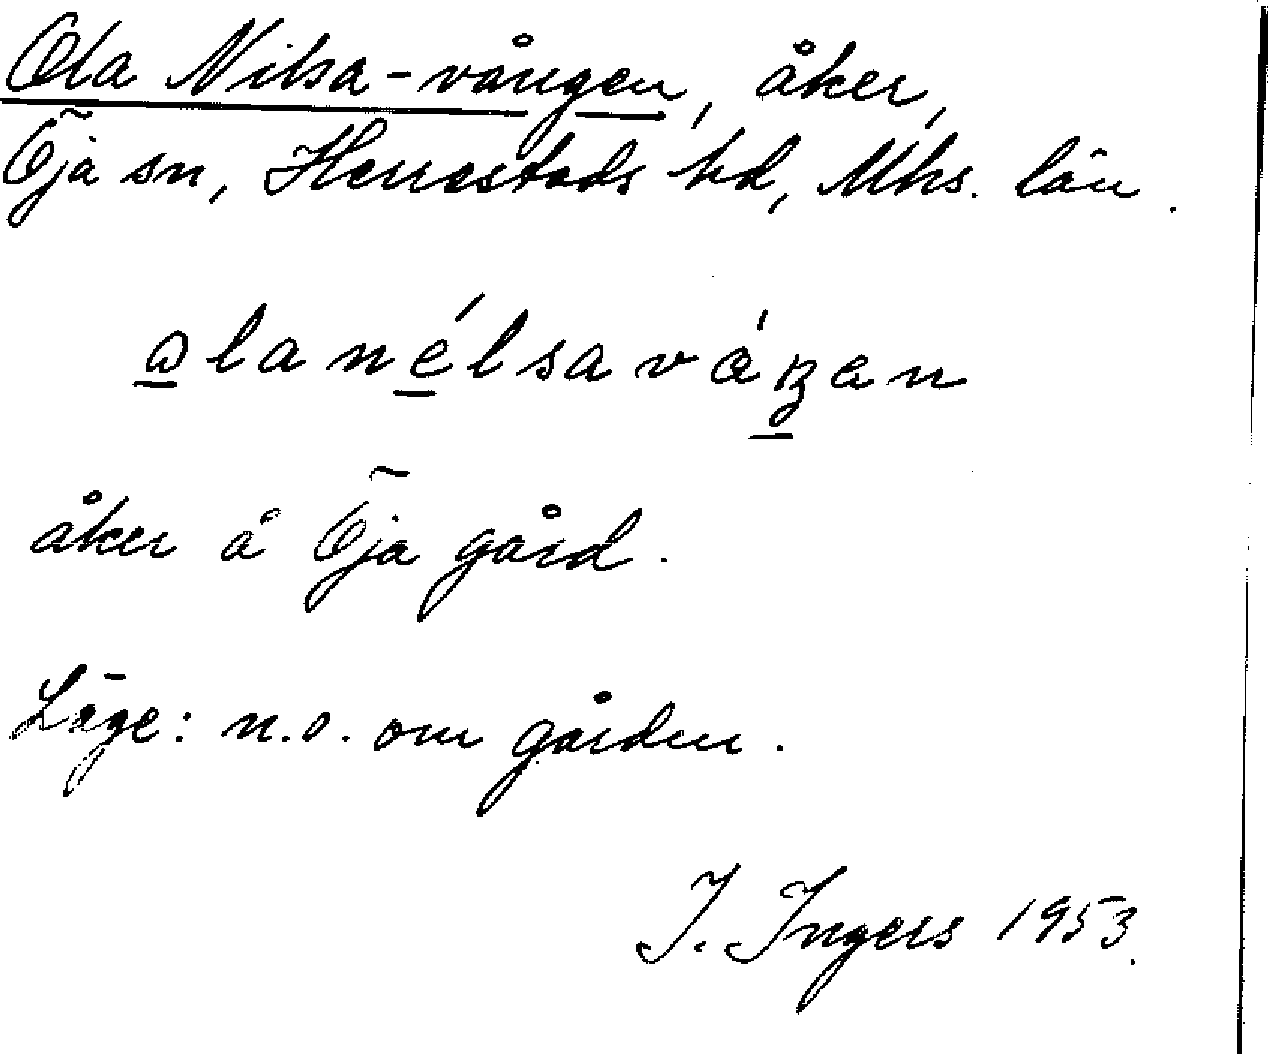 Ola Nilsa-vången, åker,
Öja sn, Herrestads hd, Mhs. län.
ɷlanélsaváŋan
åker å Öja gård.
Läge: n.o. om gården.
I. Ingers 1953.